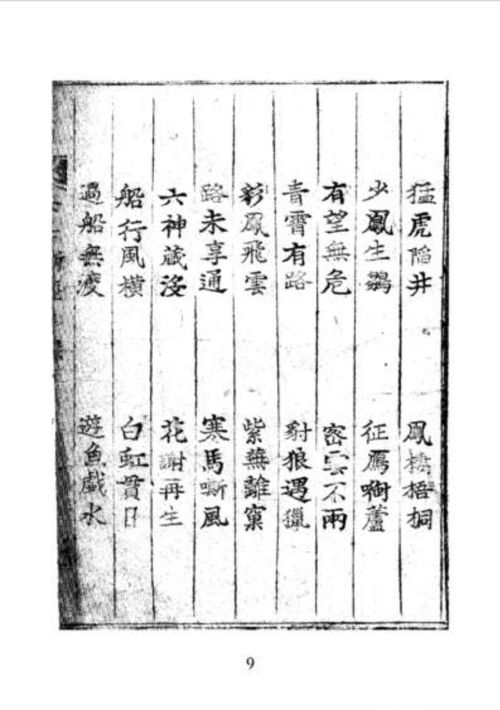 猛虎陷井　鳳棲梧桐
少鳳生　征鴈啣蘆
有望無危　密雲不雨
青霄有路　豺狼遇獵
彩鳳飛雲　紫燕離窠
路未享通　寒馬嘶風
六神藏沒　花謝再生
船行風橫　白虹貫日
過船無渡　遊魚戲水
9